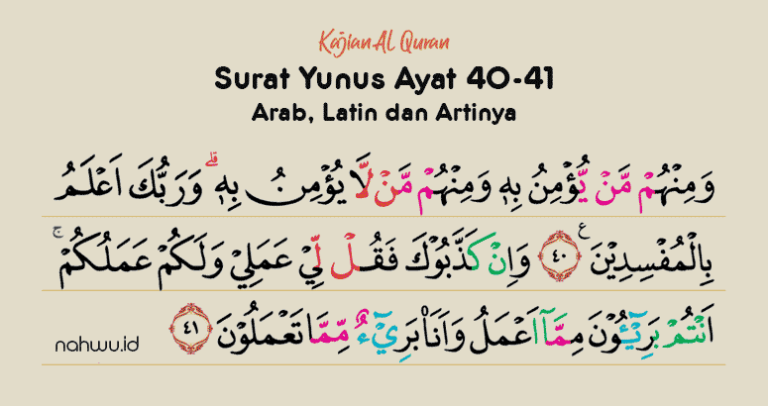 Kajian AL Quran
Surat Yunus Ayat 40-41
Arab, Latin dan Artinya
وَمِنْهُمْ مَّنْ يُّؤْمِنُ بِهٖ وَمِنْهُمْ مَّنْ لَّا يُؤْمِنُ بِهٖۗ وَرَبُّكَ اَعْلَمُ
بِالْمُفْسِدِيْنَ ࣖ ٤٠ وَاِنْ كَذَّبُوْكَ فَقُلْ لِّيْ عَمَلِيْ وَلَكُمْ عَمَلُكُمْۚ
اَنْتُمْ بَرِيْۤـُٔوْنَ مِمَّآ اَعْمَلُ وَاَنَا۠ بَرِيْۤءٌ مِّمَّا تَعْمَلُوْنَ ٤١
nahwu.id